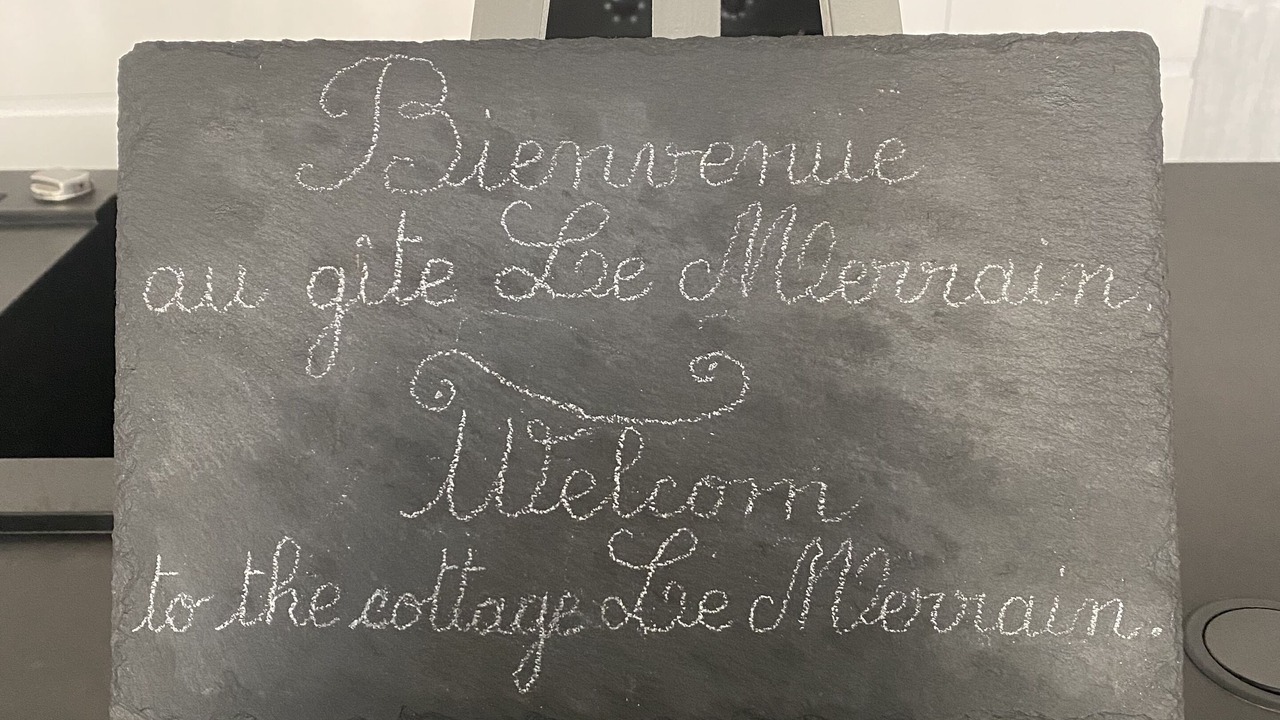 Bienvenüe
au gîte Le Merrain.
Welcom
to the cottage Le Merrain.